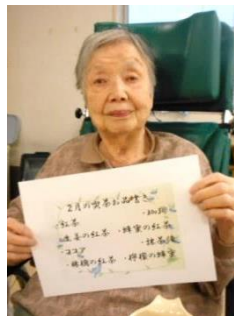 2月の喫茶お品書き
紅茶 ・珈琲
生姜の紅茶 ・蜂蜜の紅茶
ココア ・抹茶
・檸檬の紅茶 ・檸檬の蜂蜜